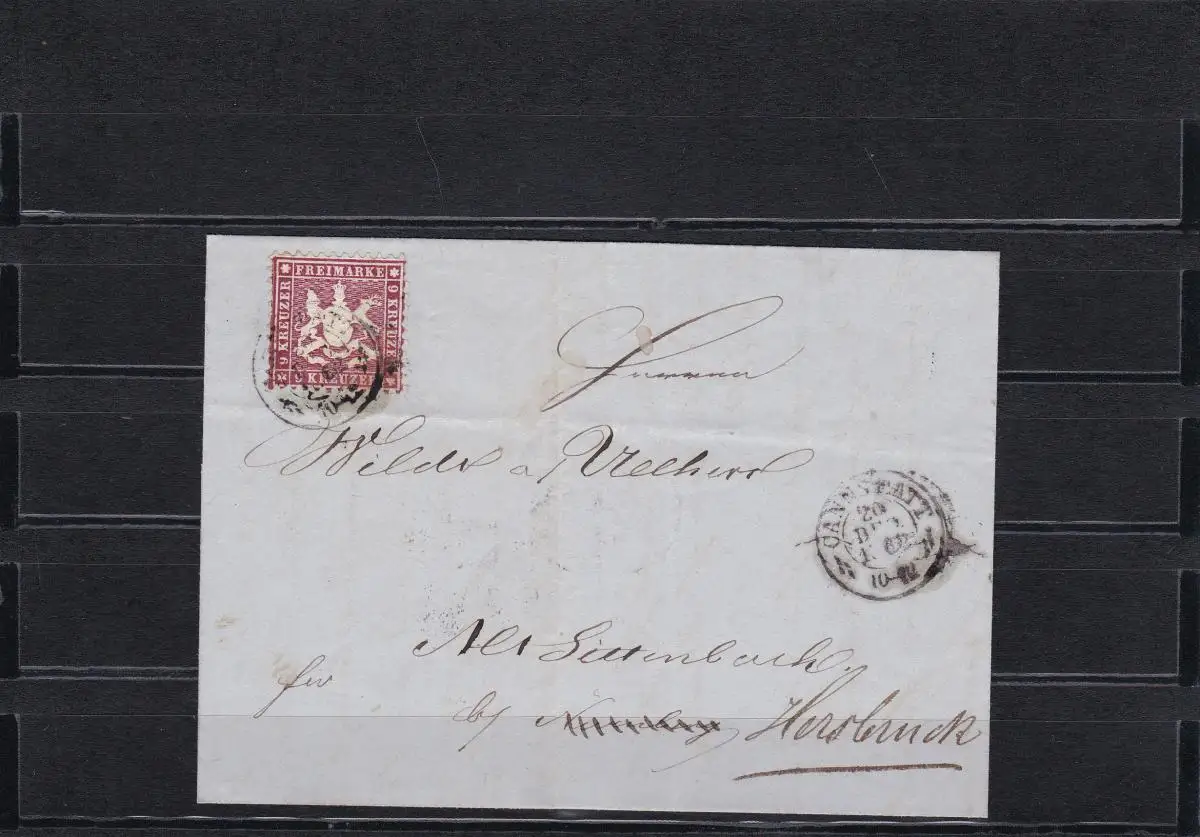 FREIMARKE
9 KREUZER
9 KREUZER
9 KREUZER
Herren
Wilds a
CANNSTATT
20
DEZ
10-12
Alt Sittenbach
fr
b/ Hersbruck